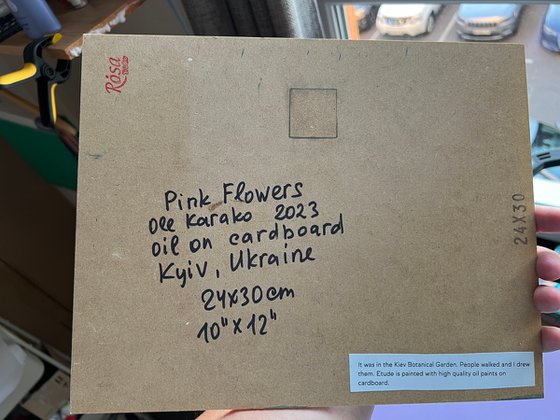 Rósa
Studio
Pink Flowers
Ole Karako 2023
oil on cardboard
Kyiv, Ukraine
24x30cm
10"x12"
24X30
It was in the Kiev Botanical Garden. People walked and I drew
them. Etude is painted with high quality oil paints on
cardboard.